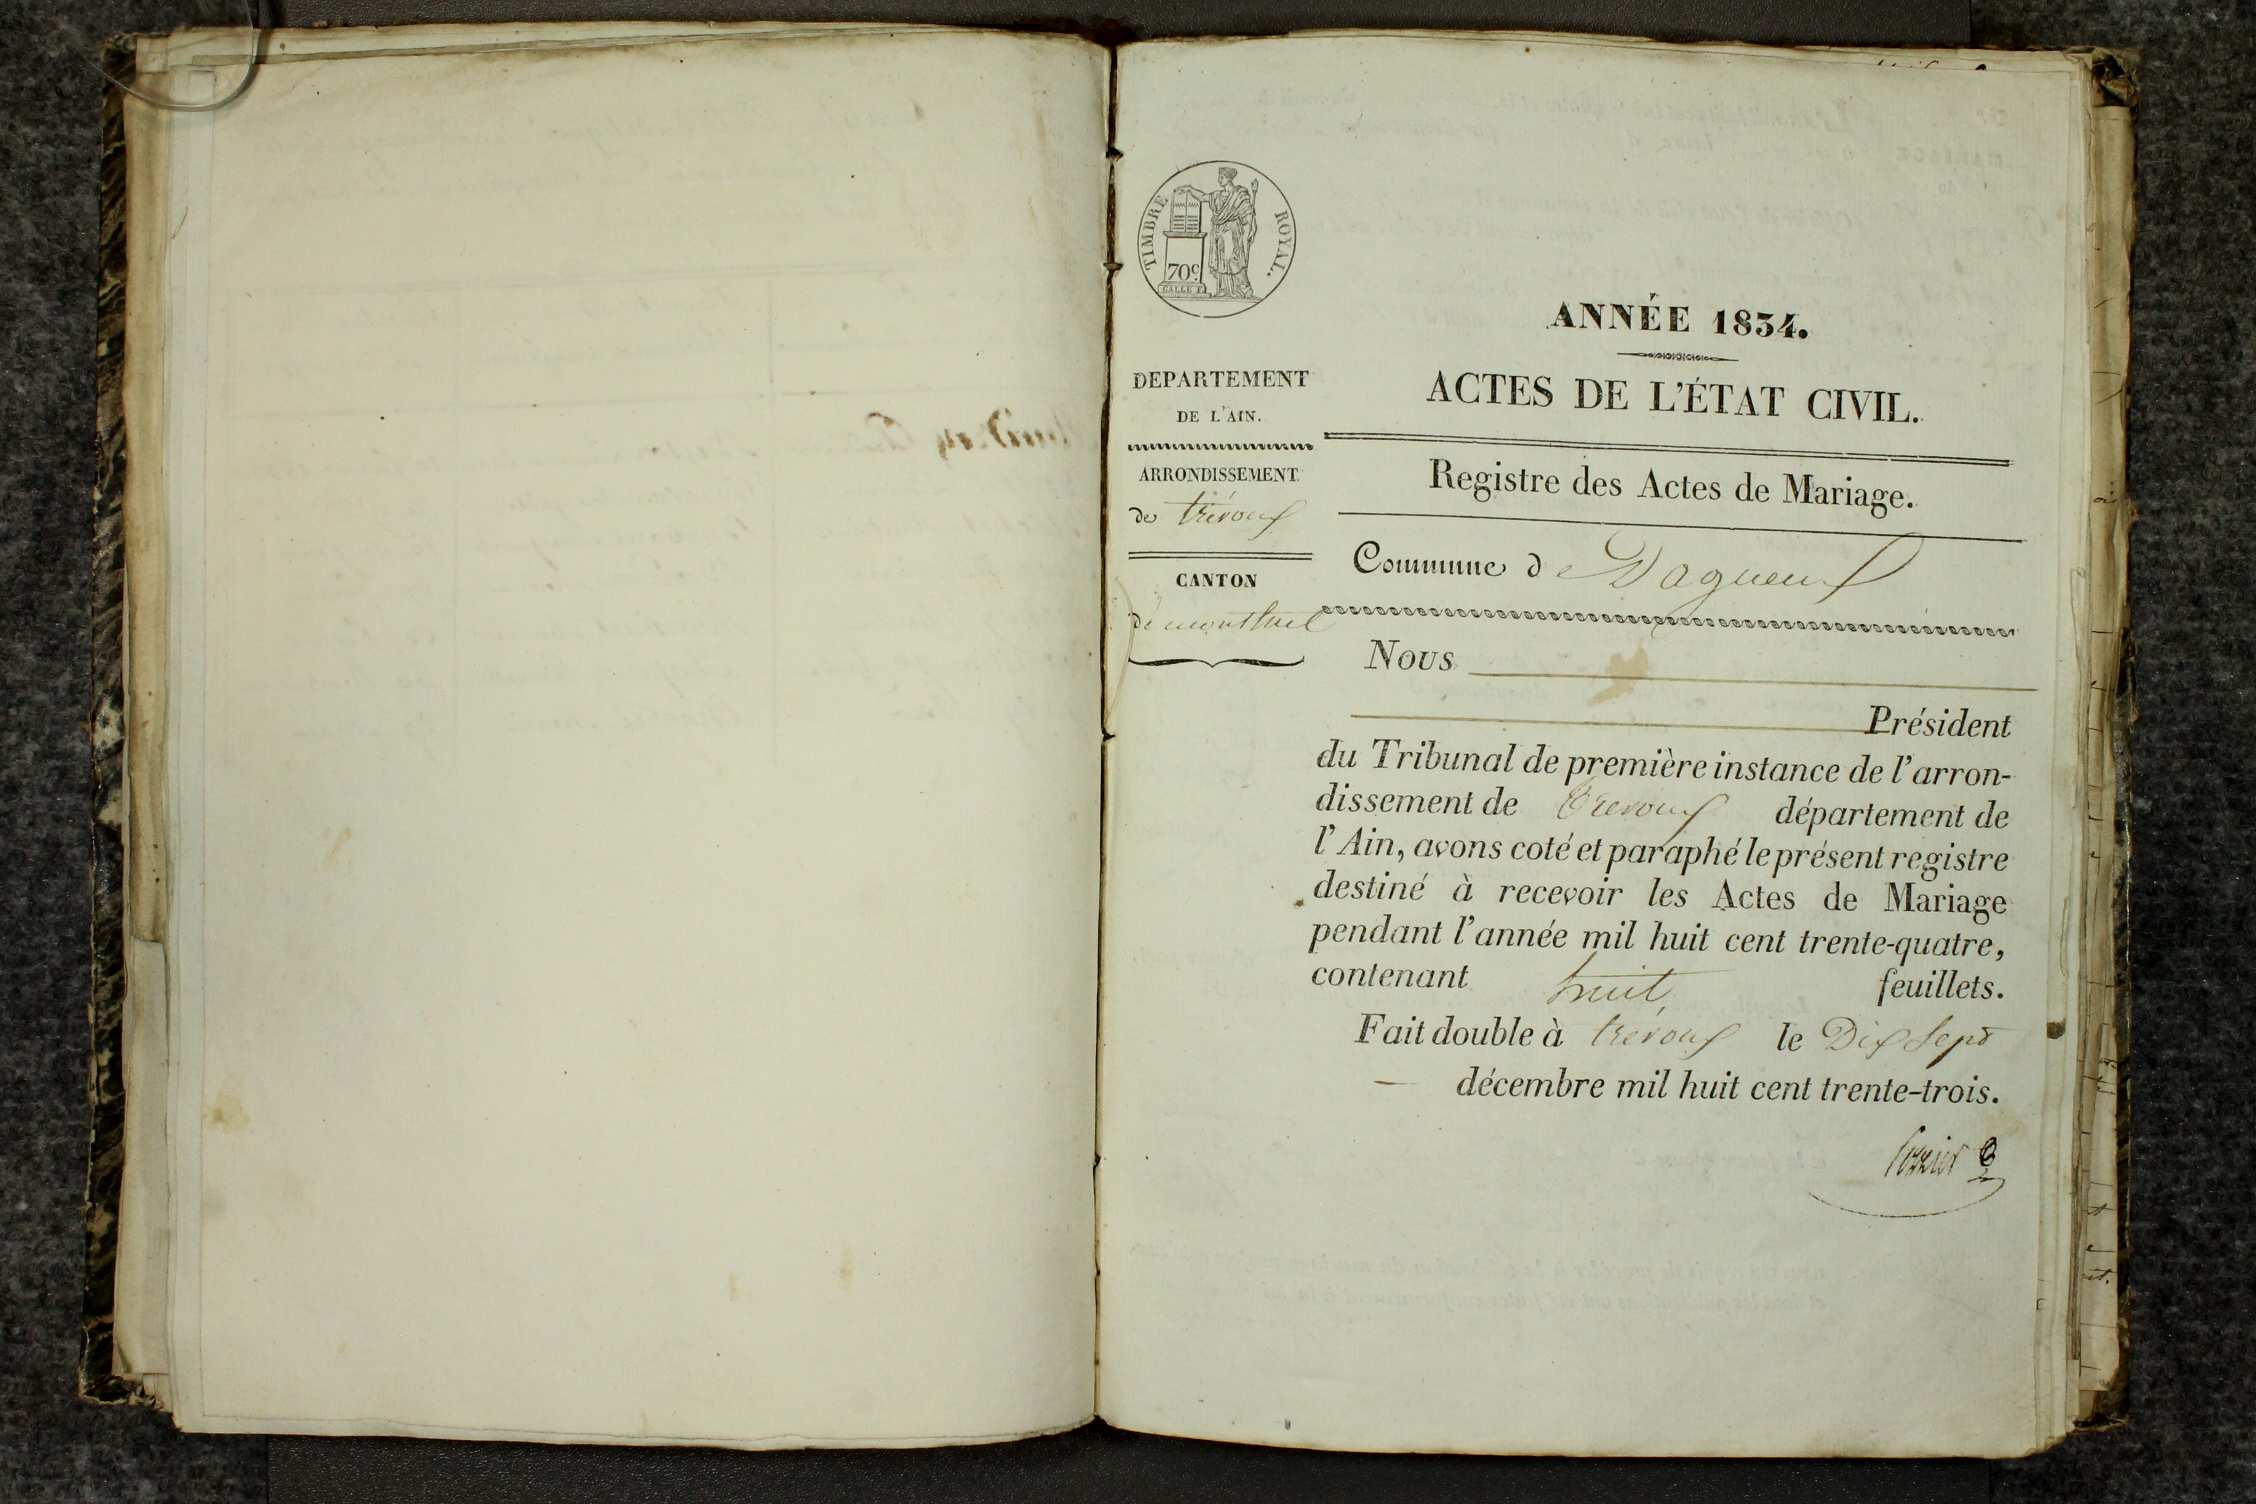 TIMBRE ROYAL.
70c
ANNÉE 1834.
DEPARTEMENT
DE L'AIN.
ACTES DE L'ÉTAT CIVIL.
ARRONDISSEMENT
de trévoux
Registre des Actes de Mariage.
CANTON
Commune de Dagneux
de montluel
Nous
Président
du Tribunal de première instance de l'arron-
dissement de Trevoux département de
l'Ain, avons coté et paraphé le présent registre
destiné à recevoir les Actes de Mariage
pendant l'année mil huit cent trente-quatre,
contenant huit feuillets.
Fait double à trévoux le Dix Sept
décembre mil huit cent trente-trois.